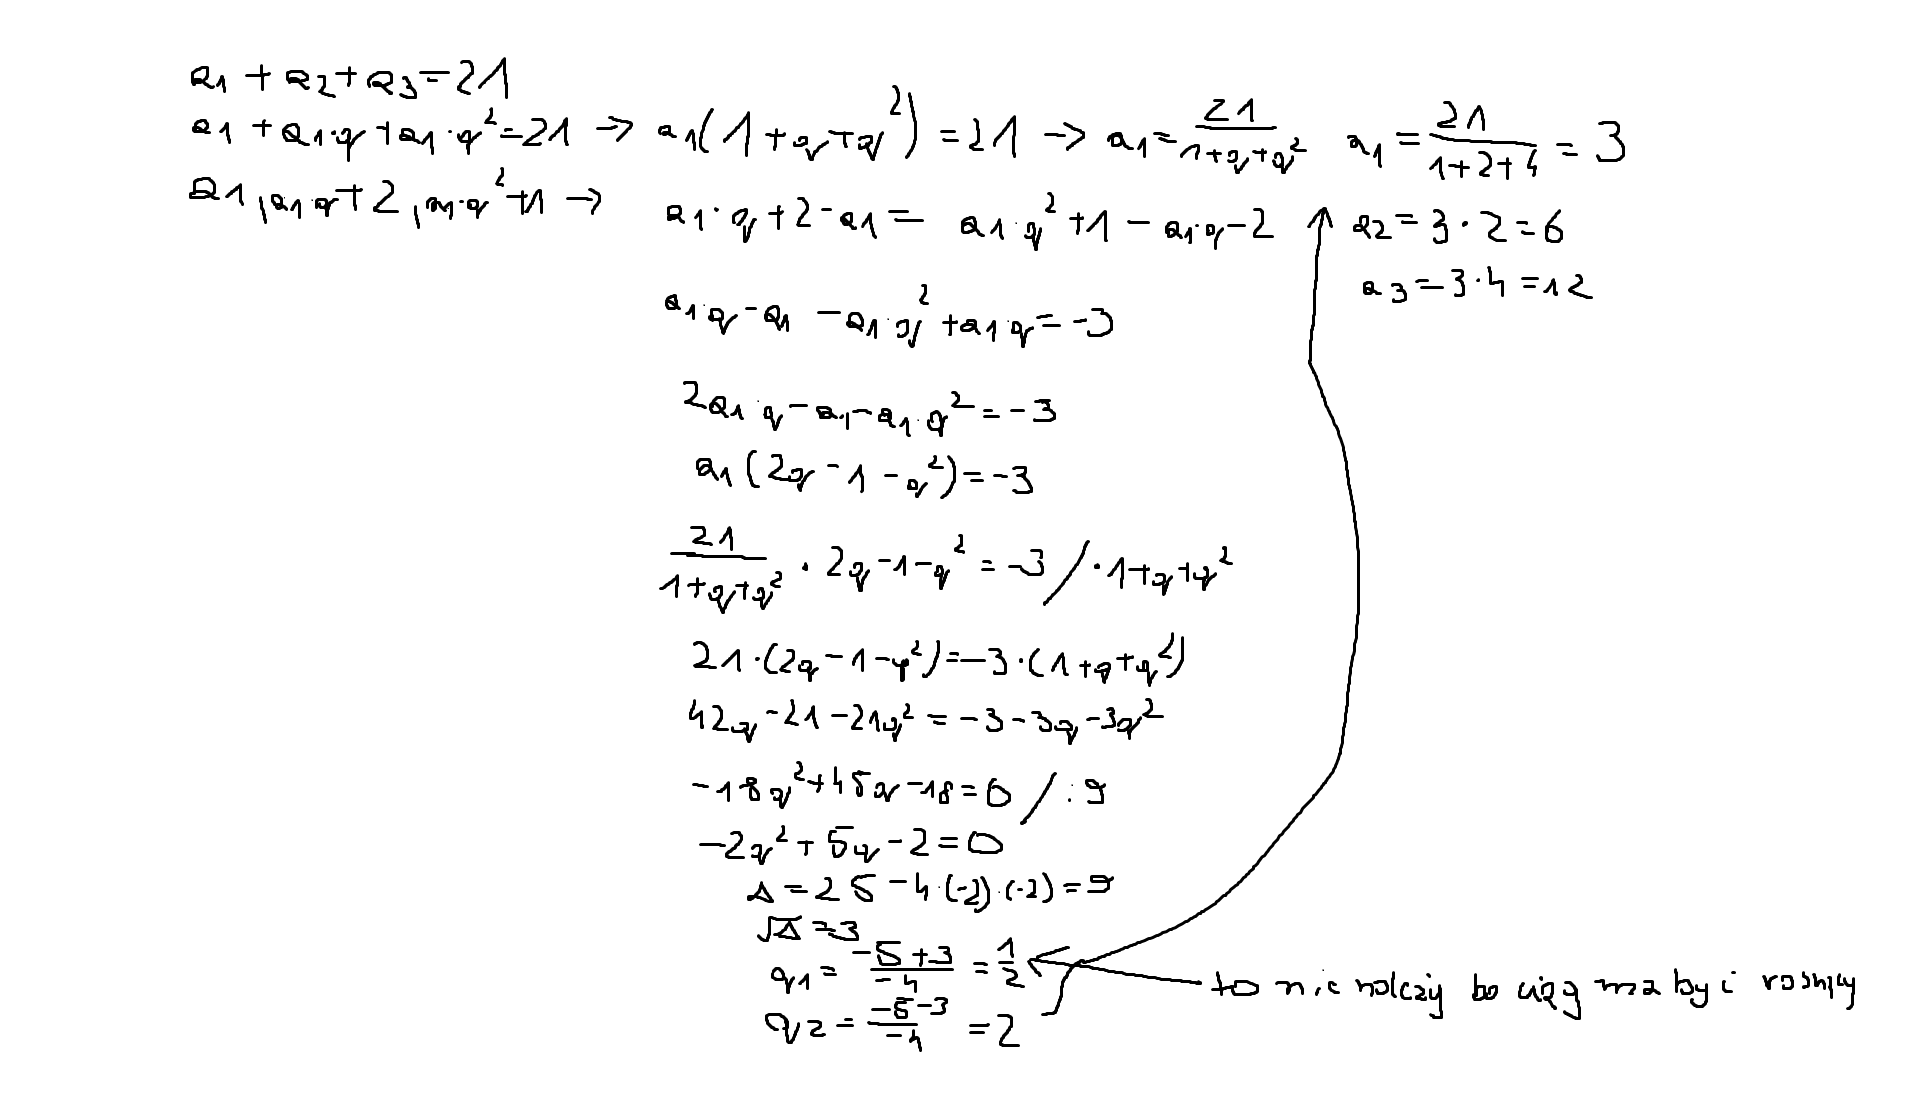 a1 + a2 + a3 = 21
a1 + a1·q + a1·q² = 21 → a1(1 + q + q²) = 21 → a1 = 21/(1+q+q²) a1 = 21/(1+2+4) = 3
a1, a1·q + 2, a1·q² + 1 → a1·q + 2 - a1 = a1·q² + 1 - a1·q - 2 a2 = 3·2 = 6
a3 = 3·4 = 12
a1·q - a1 - a1·q² + a1·q = -3
2a1·q - a1 - a1·q² = -3
a1(2q - 1 - q²) = -3
21/(1+q+q²) · 2q - 1 - q² = -3 / ·1+q+q²
21·(2q - 1 - q²) = -3·(1+q+q²)
42q - 21 - 21q² = -3 - 3q - 3q²
-18q² + 45q - 18 = 0 / :9
-2q² + 5q - 2 = 0
Δ = 25 - 4·(-2)·(-2) = 9
√Δ = 3
q1 = (-5+3)/(-4) = 1/2 ← to nie należy bo ciąg ma być rosnący
q2 = (-5-3)/(-4) = 2